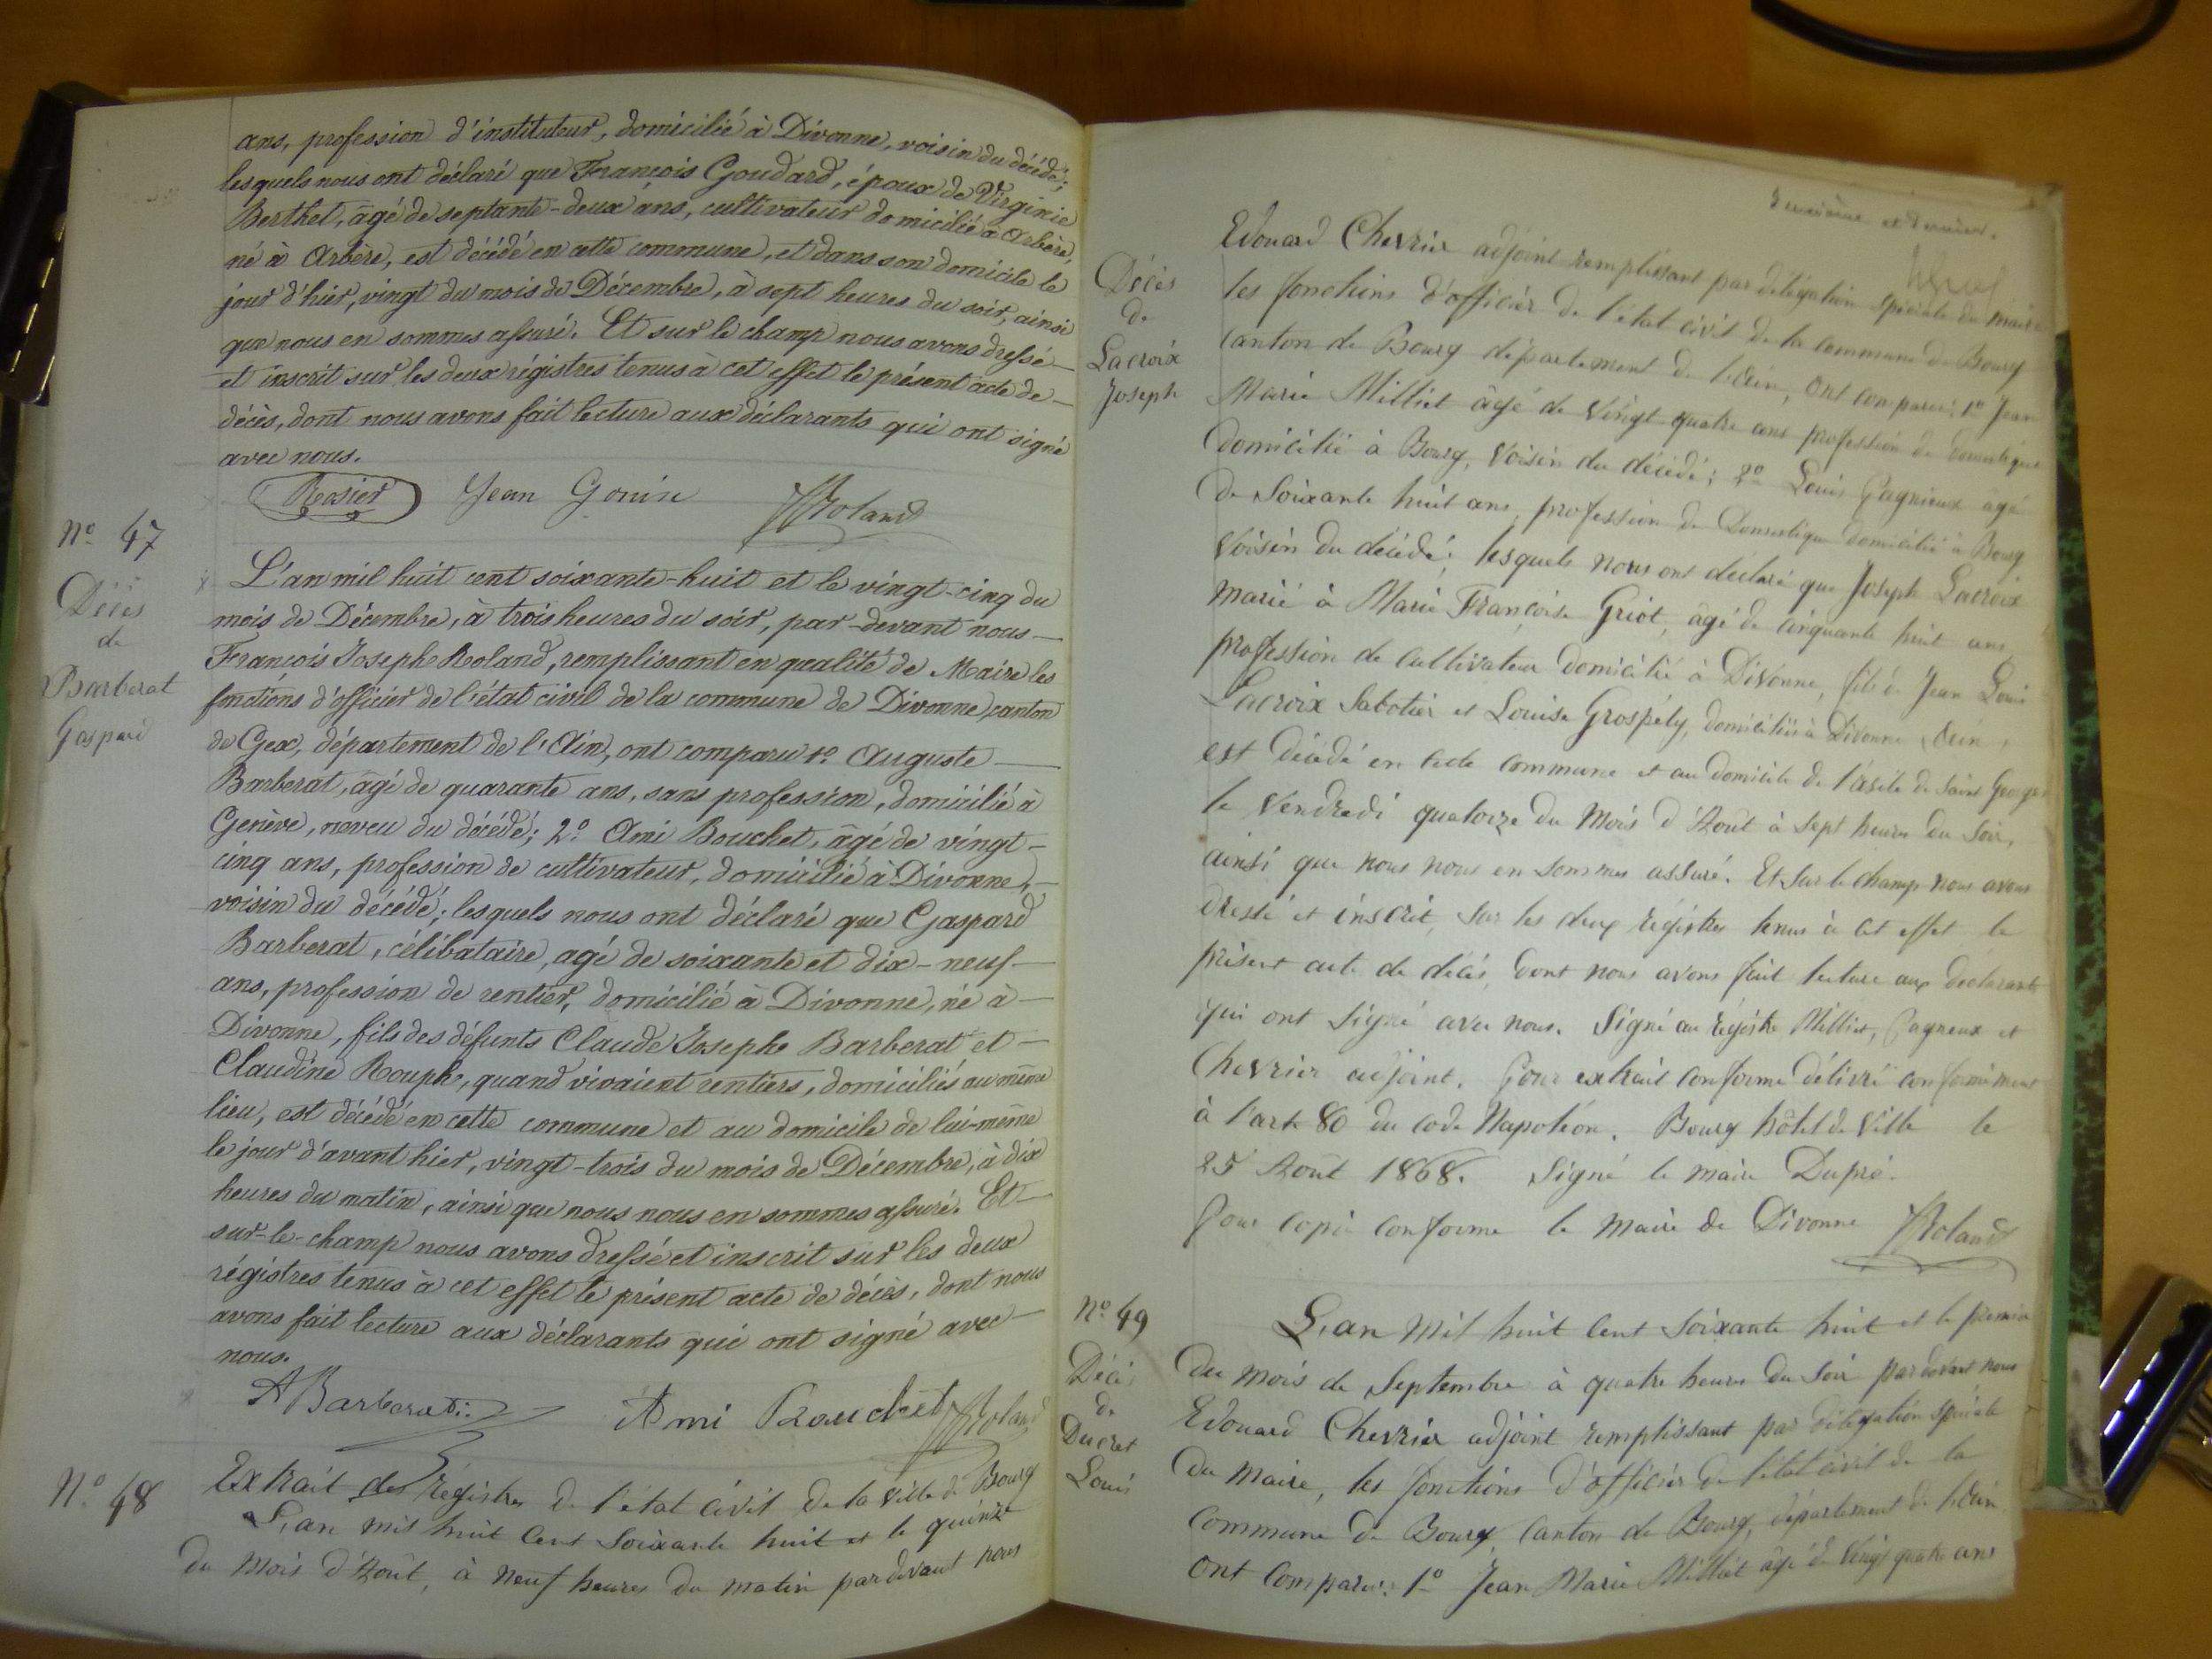 ans, profession d'instituteur, domicilié à Divonne, voisin du décédé;
lesquels nous ont déclaré que François Goudard, époux de Virginie
Berthet, âgé de septante-deux ans, cultivateur domicilié à Arbère,
né à Arbère, est décédé en cette commune, et dans son domicile le
jour d'hier, vingt du mois de Décembre, à sept heures du soir, ainsi
que nous en sommes assuré. Et sur le champ nous avons dressé
et inscrit sur les deux régistres tenus à cet effet le présent acte de
décès, dont nous avons fait lecture aux déclarants qui ont signé
avec nous.
Rosier Jean Gonin JRoland
No 47
Décès
de
Barberat
Gaspard
L'an mil huit cent soixante-huit et le vingt-cinq du
mois de Décembre, à trois heures du soir, par-devant nous
François Joseph Roland, remplissant en qualité de Maire les
fonctions d'officier de l'état civil de la commune de Divonne, canton
de Gex, département de l'Ain, ont comparu 1o Auguste
Barberat, âgé de quarante ans, sans profession, domicilié à
Genève, neveu du décédé; 2o Ami Bouchet, âgé de vingt-
cinq ans, profession de cultivateur, domicilié à Divonne,
voisin du décédé; lesquels nous ont déclaré que Gaspard
Barberat, célibataire, agé de soixante et dix-neuf
ans, profession de rentier, domicilié à Divonne, né à
Divonne, fils des défunts Claude Joseph Barberat et
Claudine Rouph, quand vivaient rentiers, domiciliés au même
lieu, est décédé en cette commune et au domicile de lui-même
le jour d'avant hier, vingt-trois du mois de Décembre, à dix
heures du matin, ainsi que nous nous en sommes assuré. Et
sur-le-champ nous avons dressé et inscrit sur les deux
régistres tenus à cet effet le présent acte de décès, dont nous
avons fait lecture aux déclarants qui ont signé avec
nous.
ABarberat Ami Bouchet JRoland
No 48
Extrait des régistres de l'état civil de la ville de Bourg
L'an mil huit cent soixante huit et le quinze
du mois d'Août, à neuf heures du matin pardevant nous
Décès
de
Lacroix
Joseph
et dernier.
Edouard Chevrier adjoint remplissant par délégation spéciale du maire
les fonctions d'officier de l'état civil de la commune de Bourg
canton de Bourg département de l'Ain, ont comparu: 1o Jean
Marie Milliet âgé de vingt quatre ans profession de domestique
domicilié à Bourg, voisin du décédé; 2o Louis Gagnieux agé
de soixante huit ans, profession de Domestique domicilié à Bourg
voisin du décédé; lesquels nous ont déclaré que Joseph Lacroix
marié à Marie Françoise Griot, âgé de cinquante huit ans
profession de cultivateur domicilié à Divonne, fils de Jean Louis
Lacroix Sabotier et Louise Grospély, domiciliés à Divonne (Ain),
est décédé en cette commune et au domicile de l'asile de Saint Georges
le Vendredi quatorze du mois d'Août à sept heures du soir,
ainsi que nous nous en sommes assuré. Et sur le champ nous avons
dressé et inscrit sur les deux régistres tenus à cet effet le
présent acte de décès, dont nous avons fait lecture aux déclarants
qui ont signé avec nous. Signé au régistre Milliet, Gagneux et
Chevrier adjoint. Pour extrait conforme délivré conformément
à l'art 80 du code Napoléon. Bourg hôtel de Ville le
25 Août 1868. Signé le maire Dupré.
Pour copie conforme le maire de Divonne JRoland
No 49
Décès
de
Ducret
Louis
L'an mil huit cent soixante huit et le premier
du mois de Septembre à quatre heures du soir pardevant nous
Edouard Chevrier adjoint remplissant par délégation spéciale
du maire, les fonctions d'officier de l'état civil de la
commune de Bourg, canton de Bourg, département de l'Ain
ont comparu: 1o Jean Marie Milliet âgé de vingt quatre ans